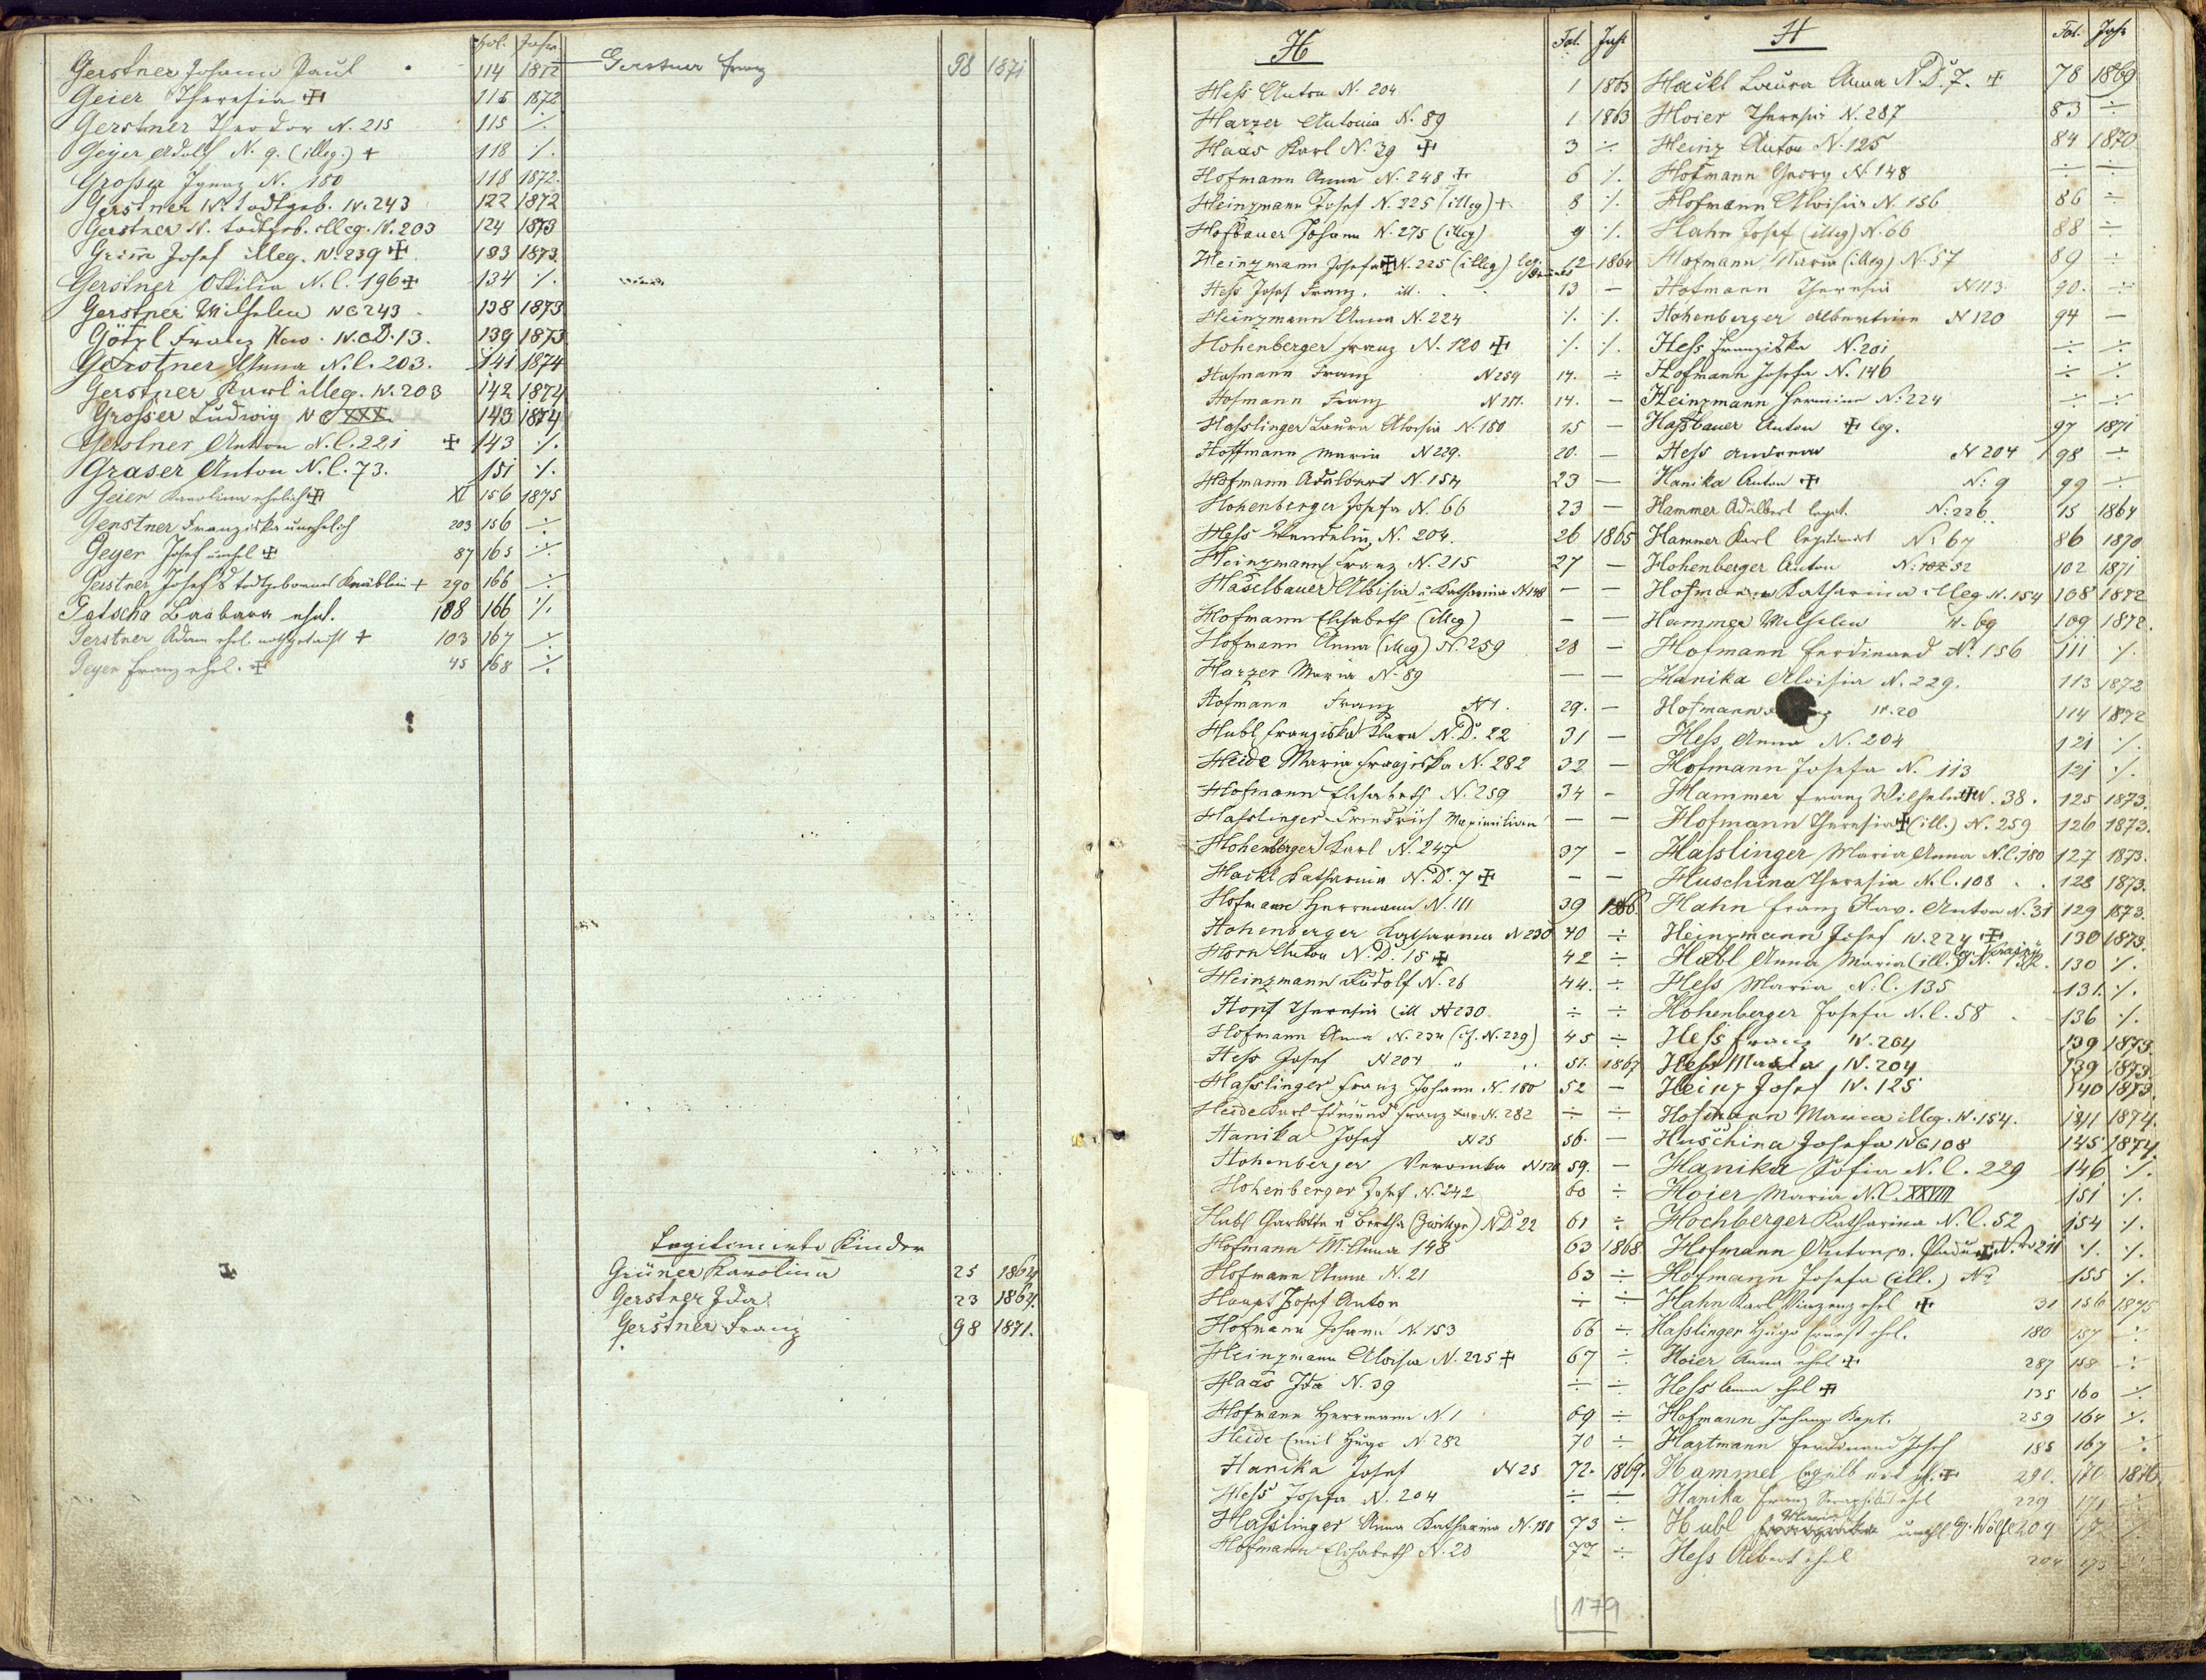 Fol. Jahr
Gerstner Johann Paul 114 1872
Geier Theresia ✠ 115 1872
Gerstner Theodor N. 215 115 ·/.
Geyer Adolf N. 9. (illeg.) + 118 ·/.
Grosser Ignaz N. 180 118 1872.
Gerstner N. todtgeb. N. 243 122 1872
Gerstner N. todtgeb. illeg. N. 203 124 1873
Grim̅ Josef illeg. N. 239 ✠ 133 1873.
Gerstner Ottilia N. C. 196 ✠ 134 ·/.
Gerstner Wilhelm NC 243 138 1873
Götzl Franz N. D. 13. 139 1873
Gerstner Anna N. C. 203. 141 1874
Gerstner Karl illeg. N. 203 142 1874
Grosser Ludwig NC XXX. 143 1874
Gerstner Anton N. C. 221 ✠ 143 ·/.
Graser Anton N. C. 73. 151 ·/.
Geier Karolina ehelich ✠ XI 156 1875
Gerstner Franziska unehelich 203 156 ÷
Geyer Josef unehl ✠ 87 165 ÷
Gerstner Josef's todtgebornes Knäblein + 290 166 ÷
Gotscha Barbara ehel. 188 166 ·/.
Gerstner Adam ehel. nothgetauft + 103 167 ÷
Geyer Franz ehel. ✠ 45 168 ÷
Gerstner Franz 98 1871
Legitimirte Kinder
Grüner Karolina 25 1864
Gerstner Ida 23 1864.
Gerstner Franz 98 1871.
H Fol. Jahr
Hess Anton N. 204 1 1863
Harzer Antonia N. 89 1 1863
Haas Karl N. 39 ✠ 3 ÷
Hofmann Anna N. 248 ✠ 6 ·/.
Heinzmann Josef N. 225 (illeg) + 8 ·/.
Hofbauer Johann N. 275 (illeg) 9 ·/.
Heinzmann Josefa ✠ N. 225 (illeg) leg. 12 1864
Hess Josef Franz. ill. 13 —
Heinzmann Anna N. 224 ·/. ·/.
Hohenberger Franz N. 120 ✠ ·/. ·/.
Hofmann Franz N 259 14. ÷
Hofmann Franz 14. —
Hasslinger Laura Aloisia N. 180 15 —
Hoffmann Maria N 229. 20. —
Hofmann Adalbert N. 154 23 —
Hohenberger Josefa N. 66 23 —
Hess Wendelin, N. 204. 26 1865
Heinzmann Franz N. 215 27 —
Haselbauer Aloisia u. Katharina N 148 — —
Hofmann Elisabeth (illeg) — —
Hofmann Anna (illeg) N. 259 28 —
Harzer Maria N. 89 — —
Hofmann Franz N 1. 29. —
Hubl Franziska Klara N. D. 22 31 —
Heide Maria Franziska N. 282 32 —
Hofmann Elisabeth N. 259 34 —
Hasslinger Friedrich Maximilian — —
Hohenberger Karl N. 247 37 —
Hackl Katharina N. D. 7 ✠ — —
Hofmann Herrmann N. 111 39 1866.
Hohenberger Katharina N 230 40 ÷
Horn Anton N. D. 15 ✠ 42 ÷
Heinzmann Rudolf N. 26 44. ÷
Hopf Theresia (ill N 230 ÷ ÷
Hofmann Anna N. 234 (N. 229) 45 ÷
Hess Josef N 204 51. 1867
Hasslinger Franz Johann N. 180 52 —
Heide Karl Edmund Franz Xav N. 282 ÷ ÷
Hanika Josef N 25 56. —
Hohenberger Veronika N 120 59. —
Hohenberger Josef N. 242 60 ÷
Hubl Charlotte u Bertha (Zwillge) N D. 22 61 ÷
Hofmann M. Anna 148 63 1868
Hofmann Anna N. 21 63 ÷
Haupt Josef Anton ÷ ÷
Hofmann Johann N. 153 66 ÷
Heinzmann Aloisia N. 225 ✠ 67 ÷
Haas Ida N. 39 ÷ ÷
Hofmann Herrmann N 1 69 ÷
Heide Emil Hugo N. 282 70 ÷
Hanika Josef N 25 72. 1869.
Hess Josefa N. 204 ÷ ÷
Hasslinger Anna Katharina N. 180 73 ÷
Hofmann Elisabeth N. 20 77 ÷
179
H Fol. Jahr
Hackl Laura Anna N. D. 7. ✠ 78 1869
Hoier Theresia N. 287 83 ÷
Heinz Anton N. 125 84 1870
Hofmann Georg N 148 ÷ ÷
Hofmann Aloisia N. 156 86 ÷
Hahn Josef (illeg) N. 66 88 ÷
Hofmann Maria (illeg) N. 57 89 ÷
Hofmann Theresia N 113 90. ÷
Hohenberger Albertine N 120 94 —
Hess Franziska N. 201 ÷ ÷
Hofmann Josefa N. 146 ÷ ÷
Heinzmann Hermine N. 224 ÷ ÷
Hassbauer Anton ✠ leg. 97 1871
Hess Andreas N 204 98 ÷
Hanika Anton ✠ N: 9 99 ÷
Hammer Adalbert legit. N: 226 15 1864
Hammer Karl legitimirt N: 67 86 1870
Hohenberger Anton N: 52 102 1871
Hofmann Katharina illeg. N. 154 108 1872
Hammer Wilhelm N. 69 109 1872.
Hofmann Ferdinand N. 156 111 ·/.
Hanika Aloisia N. 229. 113 1872
Hofmann N. 20 114 1872
Hess Anna N. 204 121 ·/.
Hofmann Josefa N. 113 121 ·/.
Hammer Franz Wilhelm ✠ N. 38. 125 1873.
Hofmann Theresia ✠ (ill.) N. 259 126 1873.
Hasslinger Maria Anna N. C. 180 127 1873.
Huschina Theresia N. C. 108 128 1873.
Hahn Franz Xav. Anton N. 31 129 1873.
Heinzmann Josef N. 224 ✠ 130 1873.
Hubl Anna Maria (ill.) 130 ·/.
Hess Maria N. C. 135 131. ·/.
Hohenberger Josefa N. C. 58 136 ·/.
Hess Franz N. 204 139 1873.
Hess Maria, N. 204 139 1873.
Heinz Josef N. 125 140 1873.
Hofmann Maria illeg. N. 154. 141 1874.
Huschina Josefa NC 108 145 1874.
Hanika Sofia N. C. 229 146 ·/.
Hoier Maria N. C. XXVIII 151 ·/.
Hochberger Katharina N. C. 52 154 ·/.
Hofmann Anton ✠ N. 211 ·/. ·/.
Hofmann Josefa (ill.) 155 ·/.
Hahn Karl Vinzenz ehel ✠ 31 156 1875
Hasslinger Hugo Ernest ehel. 180 157 ÷
Hoier Anna ehel ✠ 287 158 ÷
Hess Anna ehel ✠ 135 160 ÷
Hofmann Johann Bapt. 259 164 ·/.
Hartmann Ferdinand Josef 185 167 ÷
Hammer ✠ 290. 170 1876.
Hanika Franz ehel 229 171
Hubl Maria unehl. leg. Wölfl 204
Hess Albert ehel 204 175